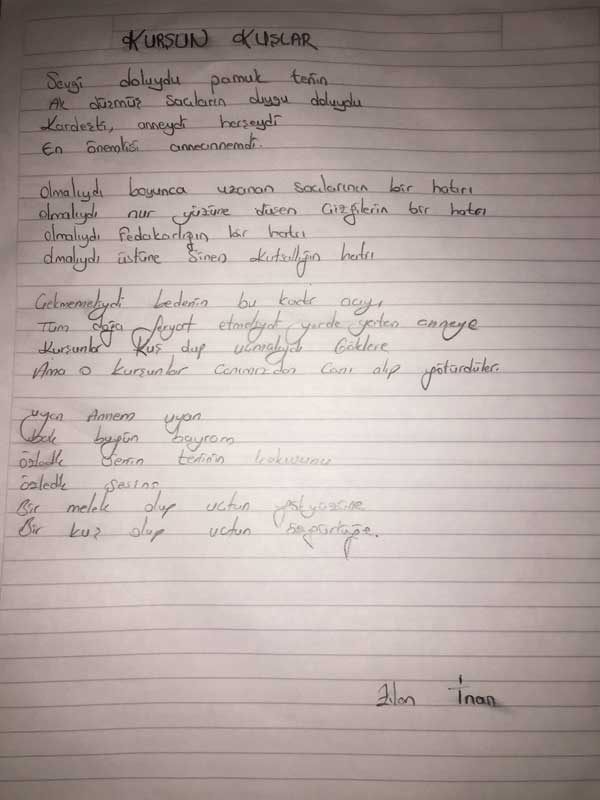 KURŞUN KUŞLAR
Sevgi doluydu pamuk tenin
Ak düzmüş saçların duygu doluydu
Kardeşti, anneydi herşeydi
En önemlisi annecinnemdi.
olmalıydı boyunca uzanan saçılarının bir hatırı
olmalıydı nur yüzüne düşen Çizgilerin bir hatrı
olmalıydı Fedakarlığın bir hatrı
olmalıydı üstüne Sinen kutsallığın hatrı
Çekmemeliydi bedenin bu kadar acıyı
Tüm doğa feryat etmeliydi yerde yatan anneye
Kurşunlar Kuş olup uçmalıydı Göklere
Ama o kurşunlar canımızdan canı alıp götürdüler.
uyan Annem uyan
bak bugün bayram
özledik senin teninin kokusunu
özledik sesini
Bir melek olup uçtun gökyüzüne
Bir kuş olup uçtun özgürlüğe.
Zilan İnan